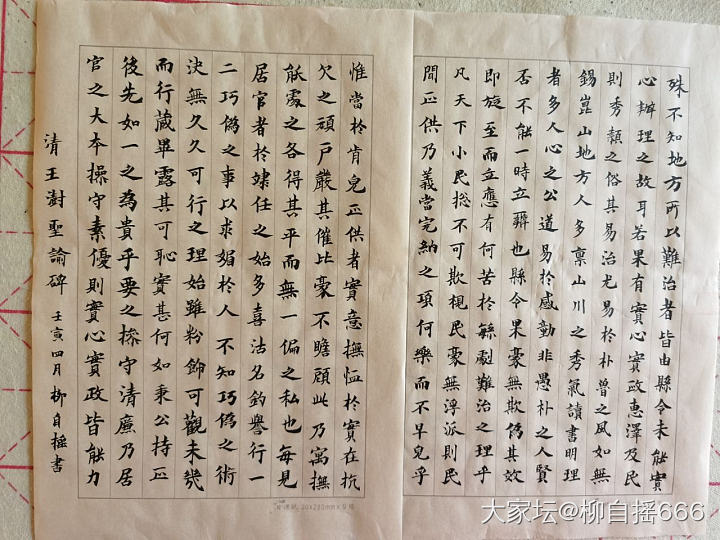 殊不知地方所以難治者皆由縣令未能實
心辦理之故耳若果有實心實政惠澤及民
則秀頹之俗其易治尤易於朴魯之風如無
錫崑山地方人多稟山川之秀氣讀書明理
者多人心之公道易於感動非愚朴之人賢
否不能一時立辨也縣令果豪無欺偽其效
即旋至而立應有何苦於繇劇難治之理乎
凡天下小民捴不可欺視民豪無浮派則民
間正供乃義當完納之項何樂而不早完乎
惟當於肯完正供者實意撫恤於實在抗
欠之頑戶嚴其催比豪不瞻顧此乃寓撫
於嚴之各得其平而無一偏之私也每見
居官者於建任之始多喜沽名釣譽行一
二巧偽之事以求媚於人不知巧偽之術
決無久久可行之理始雖粉飾可觀未幾
而行蔵畢露其可恥實甚何如秉公持正
後先如一之為貴乎要之操守清廉乃居
官之大本操守素優則實心實政皆能力
清王澍聖諭碑 壬寅四月柳自摇書
大家坛@柳自摇666